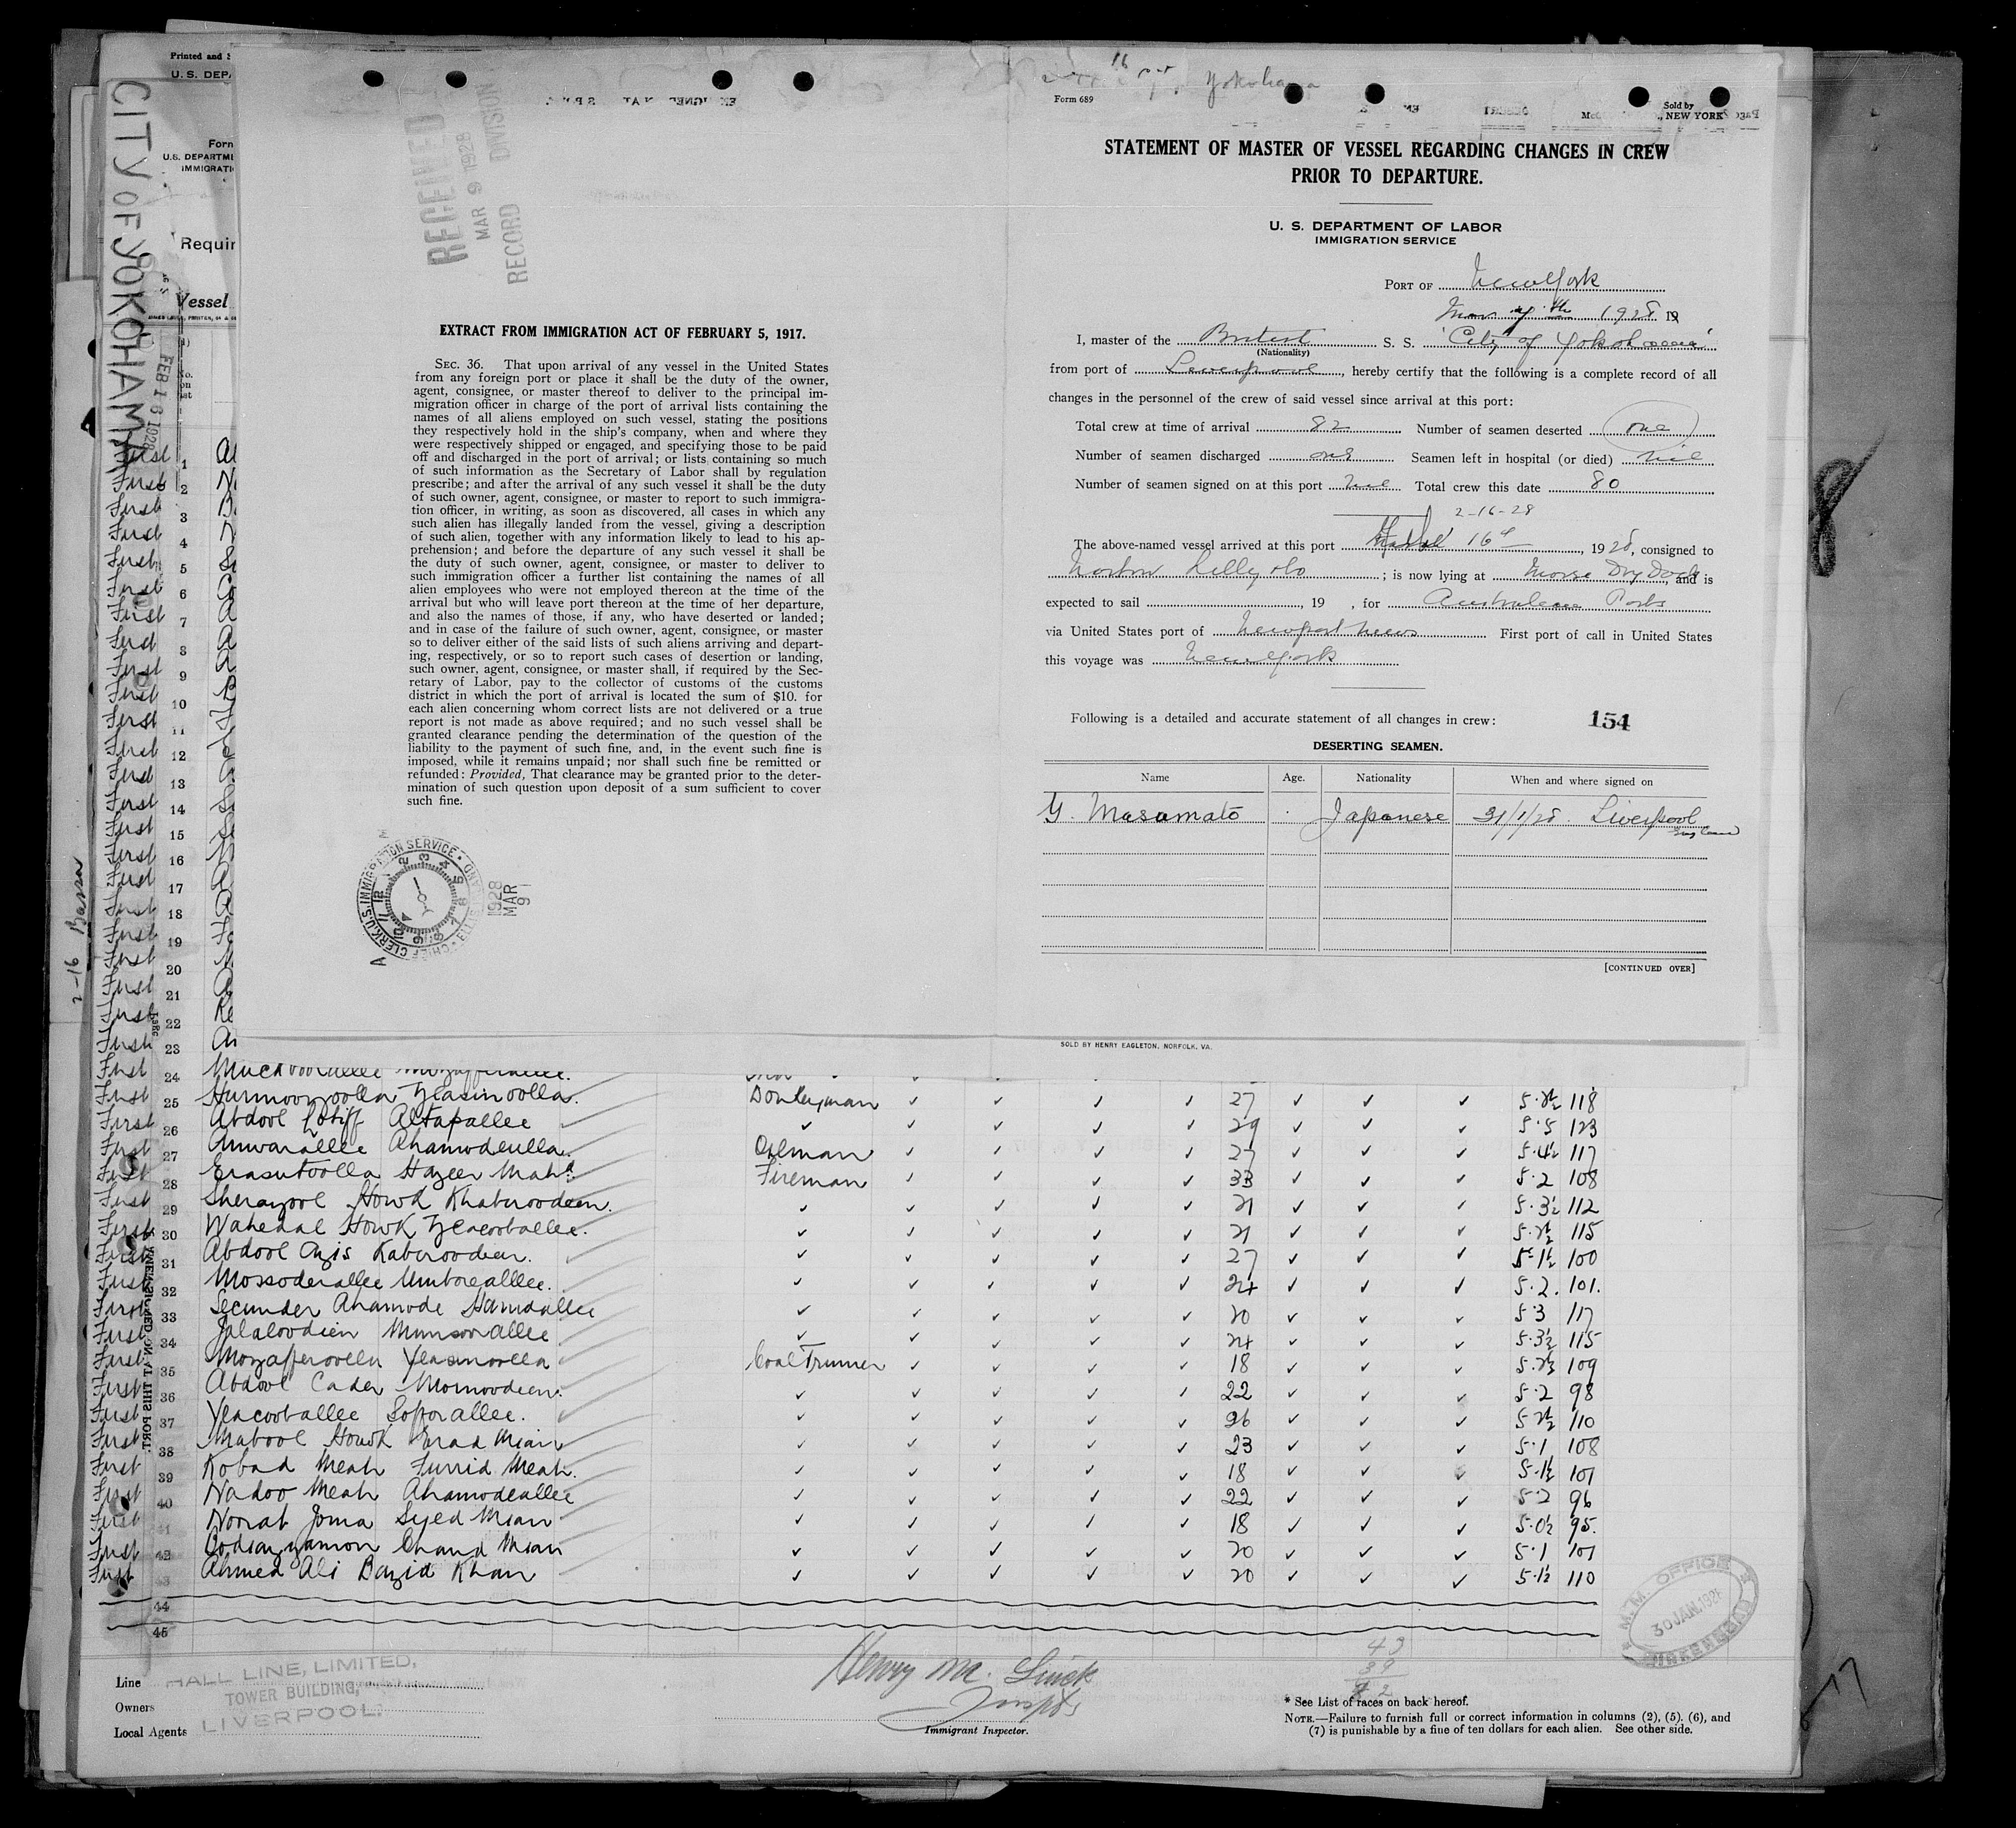 Printed and S
U. S. DEPA
Form
U.S. DEPARTME
IMMIGRATI
Requir
Vessel
CITY OF YOKOHAMA
FEB 16 1928
2-16
RECEIVED
MAR 9 1928
RECORD DIVISION
EXTRACT FROM IMMIGRATION ACT OF FEBRUARY 5, 1917.
SEC. 36. That upon arrival of any vessel in the United States
from any foreign port or place it shall be the duty of the owner,
agent, consignee, or master thereof to deliver to the principal im-
migration officer in charge of the port of arrival lists containing the
names of all aliens employed on such vessel, stating the positions
they respectively hold in the ship's company, when and where they
were respectively shipped or engaged, and specifying those to be paid
off and discharged in the port of arrival; or lists containing so much
of such information as the Secretary of Labor shall by regulation
prescribe; and after the arrival of any such vessel it shall be the duty
of such owner, agent, consignee, or master to report to such immigra-
tion officer, in writing, as soon as discovered, all cases in which any
such alien has illegally landed from the vessel, giving a description
of such alien, together with any information likely to lead to his ap-
prehension; and before the departure of any such vessel it shall be
the duty of such owner, agent, consignee, or master to deliver to
such immigration officer a further list containing the names of all
alien employees who were not employed thereon at the time of the
arrival but who will leave port thereon at the time of her departure,
and also the names of those, if any, who have deserted or landed;
and in case of the failure of such owner, agent, consignee, or master
so to deliver either of the said lists of such aliens arriving and depart-
ing, respectively, or so to report such cases of desertion or landing,
such owner, agent, consignee, or master shall, if required by the Sec-
retary of Labor, pay to the collector of customs of the customs
district in which the port of arrival is located the sum of $10. for
each alien concerning whom correct lists are not delivered or a true
report is not made as above required; and no such vessel shall be
granted clearance pending the determination of the question of the
liability to the payment of such fine, and, in the event such fine is
imposed, while it remains unpaid; nor shall such fine be remitted or
refunded: Provided, That clearance may be granted prior to the deter-
mination of such question upon deposit of a sum sufficient to cover
such fine.
1928 MAR 9
Yokohama
Form 689
Sold by
NEW YORK
STATEMENT OF MASTER OF VESSEL REGARDING CHANGES IN CREW
PRIOR TO DEPARTURE.
U. S. DEPARTMENT OF LABOR
IMMIGRATION SERVICE
PORT OF New York
1928 19
I, master of the British S. S. 'City of Yokohama'
(Nationality)
from port of Liverpool, hereby certify that the following is a complete record of all
changes in the personnel of the crew of said vessel since arrival at this port:
Total crew at time of arrival 82 Number of seamen deserted one
Number of seamen discharged one Seamen left in hospital (or died) nil
Number of seamen signed on at this port nil Total crew this date 80
2-16-28
The above-named vessel arrived at this port 16th, 1928, consigned to
Norton Lilly & Co; is now lying at Morse Dry Dock, and is
expected to sail , 19 , for Australian Ports
via United States port of Newport News First port of call in United States
this voyage was New York
Following is a detailed and accurate statement of all changes in crew: 154
DESERTING SEAMEN.
Name Age. Nationality When and where signed on
Y. Masamato Japanese 31/1/28. Liverpool
England
[CONTINUED OVER]
SOLD BY HENRY EAGLETON, NORFOLK, VA.
First 1
First 2
First 3
First 4
First 5
First 6
First 7
First 8
First 9
First 10
First 11
First 12
First 13
First 14
First 15
First 16
First 17
First 18
First 19
First 20
First 21
First 22
First 23
First 24
First 25 Hurmoozoolla Yeasinoolla. Donkeyman ✓ ✓ ✓ ✓ 27 ✓ ✓ ✓ 5·2½ 118
First 26 Abdool Lotiff Altapallee ✓ ✓ ✓ ✓ ✓ 29 ✓ ✓ ✓ 5·5 123
First 27 Anwarallee Ahamodeulla. Oilman ✓ ✓ ✓ ✓ 27 ✓ ✓ ✓ 5·4½ 117
First 28 Erasutoolla Hazeer Mahd Fireman ✓ ✓ ✓ ✓ 33 ✓ ✓ ✓ 5·2 108
First 29 Sherazool Howk Khabroodeen. ✓ ✓ ✓ ✓ ✓ 21 ✓ ✓ ✓ 5·3½ 112
First 30 Wahedal Howk Yeacooballee. ✓ ✓ ✓ ✓ ✓ 21 ✓ ✓ ✓ 5·2½ 115
First 31 Abdool Azis Kabroodeen. ✓ ✓ ✓ ✓ ✓ 27 ✓ ✓ ✓ 5·1½ 100
First 32 Mossoderallee Umborealllee. ✓ ✓ ✓ ✓ ✓ 24 ✓ ✓ ✓ 5·2. 101.
First 33 Secunder Ahamode Hamdallee ✓ ✓ ✓ ✓ ✓ 20 ✓ ✓ ✓ 5·3 117
First 34 Jalaloodien Munsoorallee ✓ ✓ ✓ ✓ ✓ 24 ✓ ✓ ✓ 5·3½ 115
First 35 Mozafferoolla Yeasinoolla Coal Trimmer ✓ ✓ ✓ ✓ 18 ✓ ✓ ✓ 5·2½ 109
First 36 Abdool Cader Momoodeen. ✓ ✓ ✓ ✓ ✓ 22 ✓ ✓ ✓ 5·2 98
First 37 Yeacooballee Soforallee. ✓ ✓ ✓ ✓ ✓ 26 ✓ ✓ ✓ 5·2½ 110
First 38 Mabool Howk Erad Mian ✓ ✓ ✓ ✓ ✓ 23 ✓ ✓ ✓ 5·1 108
First 39 Kobad Meah Furrid Meah. ✓ ✓ ✓ ✓ ✓ 18 ✓ ✓ ✓ 5·1½ 101
First 40 Nadoo Meah Ahamodeallee ✓ ✓ ✓ ✓ ✓ 22 ✓ ✓ ✓ 5·2 96
First 41 Noorat Joma Syed Mian ✓ ✓ ✓ ✓ ✓ 18 ✓ ✓ ✓ 5·0½ 95.
First 42 Bodiazzamon Chand Mian ✓ ✓ ✓ ✓ ✓ 20 ✓ ✓ ✓ 5·1 101
First 43 Ahmed Ali Bazid Khan ✓ ✓ ✓ ✓ ✓ 20 ✓ ✓ ✓ 5·1½ 110
44
45
M.M. OFFICE
30 JAN. 1928
BIRKENHEAD
Line HALL LINE, LIMITED,
Owners TOWER BUILDING,
Local Agents LIVERPOOL.
Henry M.
Immigrant Inspector.
43
39
82
* See List of races on back hereof.
NOTE.—Failure to furnish full or correct information in columns (2), (5), (6), and
(7) is punishable by a fine of ten dollars for each alien. See other side.